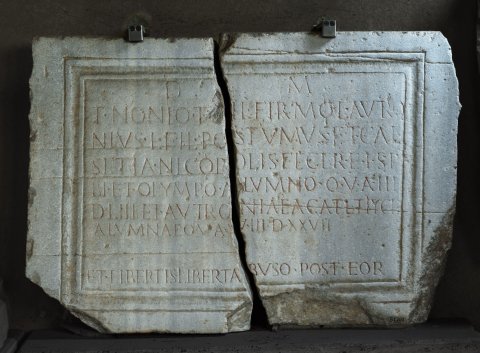 D M
T·NONIO·T·FIL·FIRMO·L·AVTRO
NIVS·L·FIL·POSTVMVS·ET·CAL
SETIA·NICOPOLIS·FECER·E·T·SI
ET·OLYMPO·ALVMNO·Q·V·A·III
D·LIII·ET·AVTRONIAE·AGATETHYCE
ALVMNAE·Q·V·A·VIIII·D·XXVII
ET·LIBERTIS·LIBERTABVSQ·POST·EOR